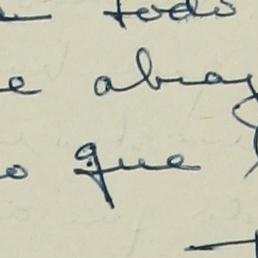 todo
e abraz
o que